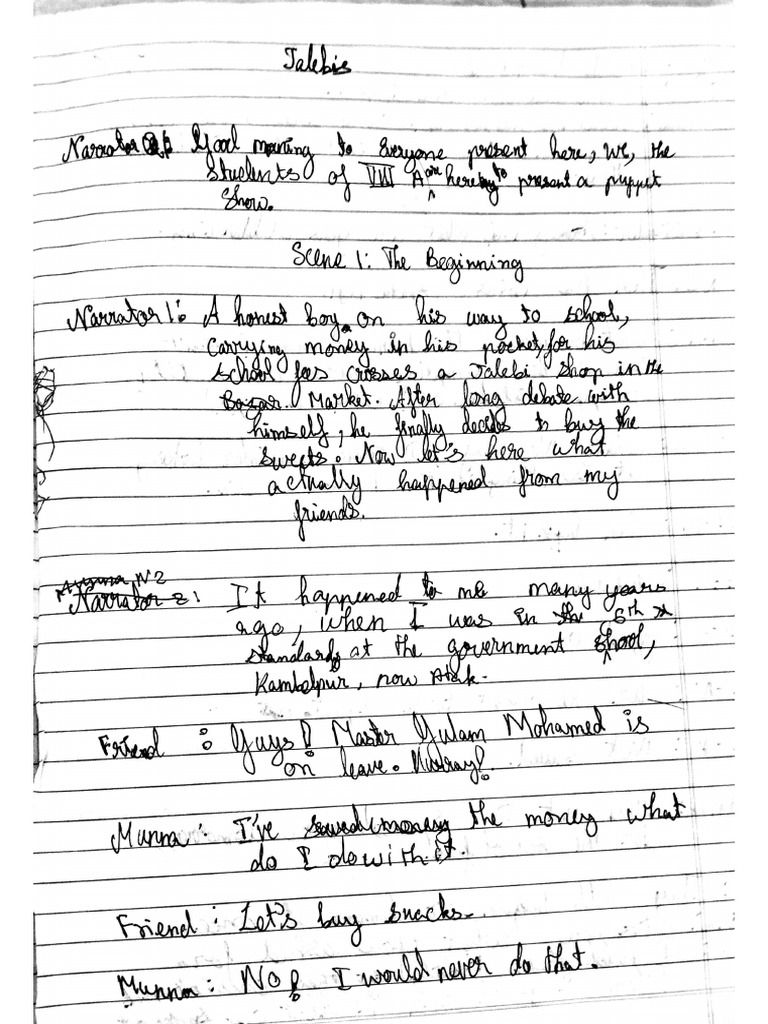 Jalebis
Narrator 1: Good morning to everyone present here, We, the
students of VIII A are here to present a puppet
show.
Scene 1: The Beginning
Narrator 1: A honest boy on his way to school,
carrying money in his pocket for his
school fees crosses a Jalebi shop in the
Bazar Market. After long debate with
himself, he finally decides to buy the
sweets. Now let's here what
actually happened from my
friends.
N2
Narrator 2: It happened to me many years
ago, when I was in the 5th
standard at the government shool,
Kambelpur, now Atak.
Friend : Guys! Master Gulam Mohamed is
on leave. Hurray!
Munna: I've saved money the money what
do I do with it.
Friend: Let's buy snacks.
Munna: No! I would never do that.